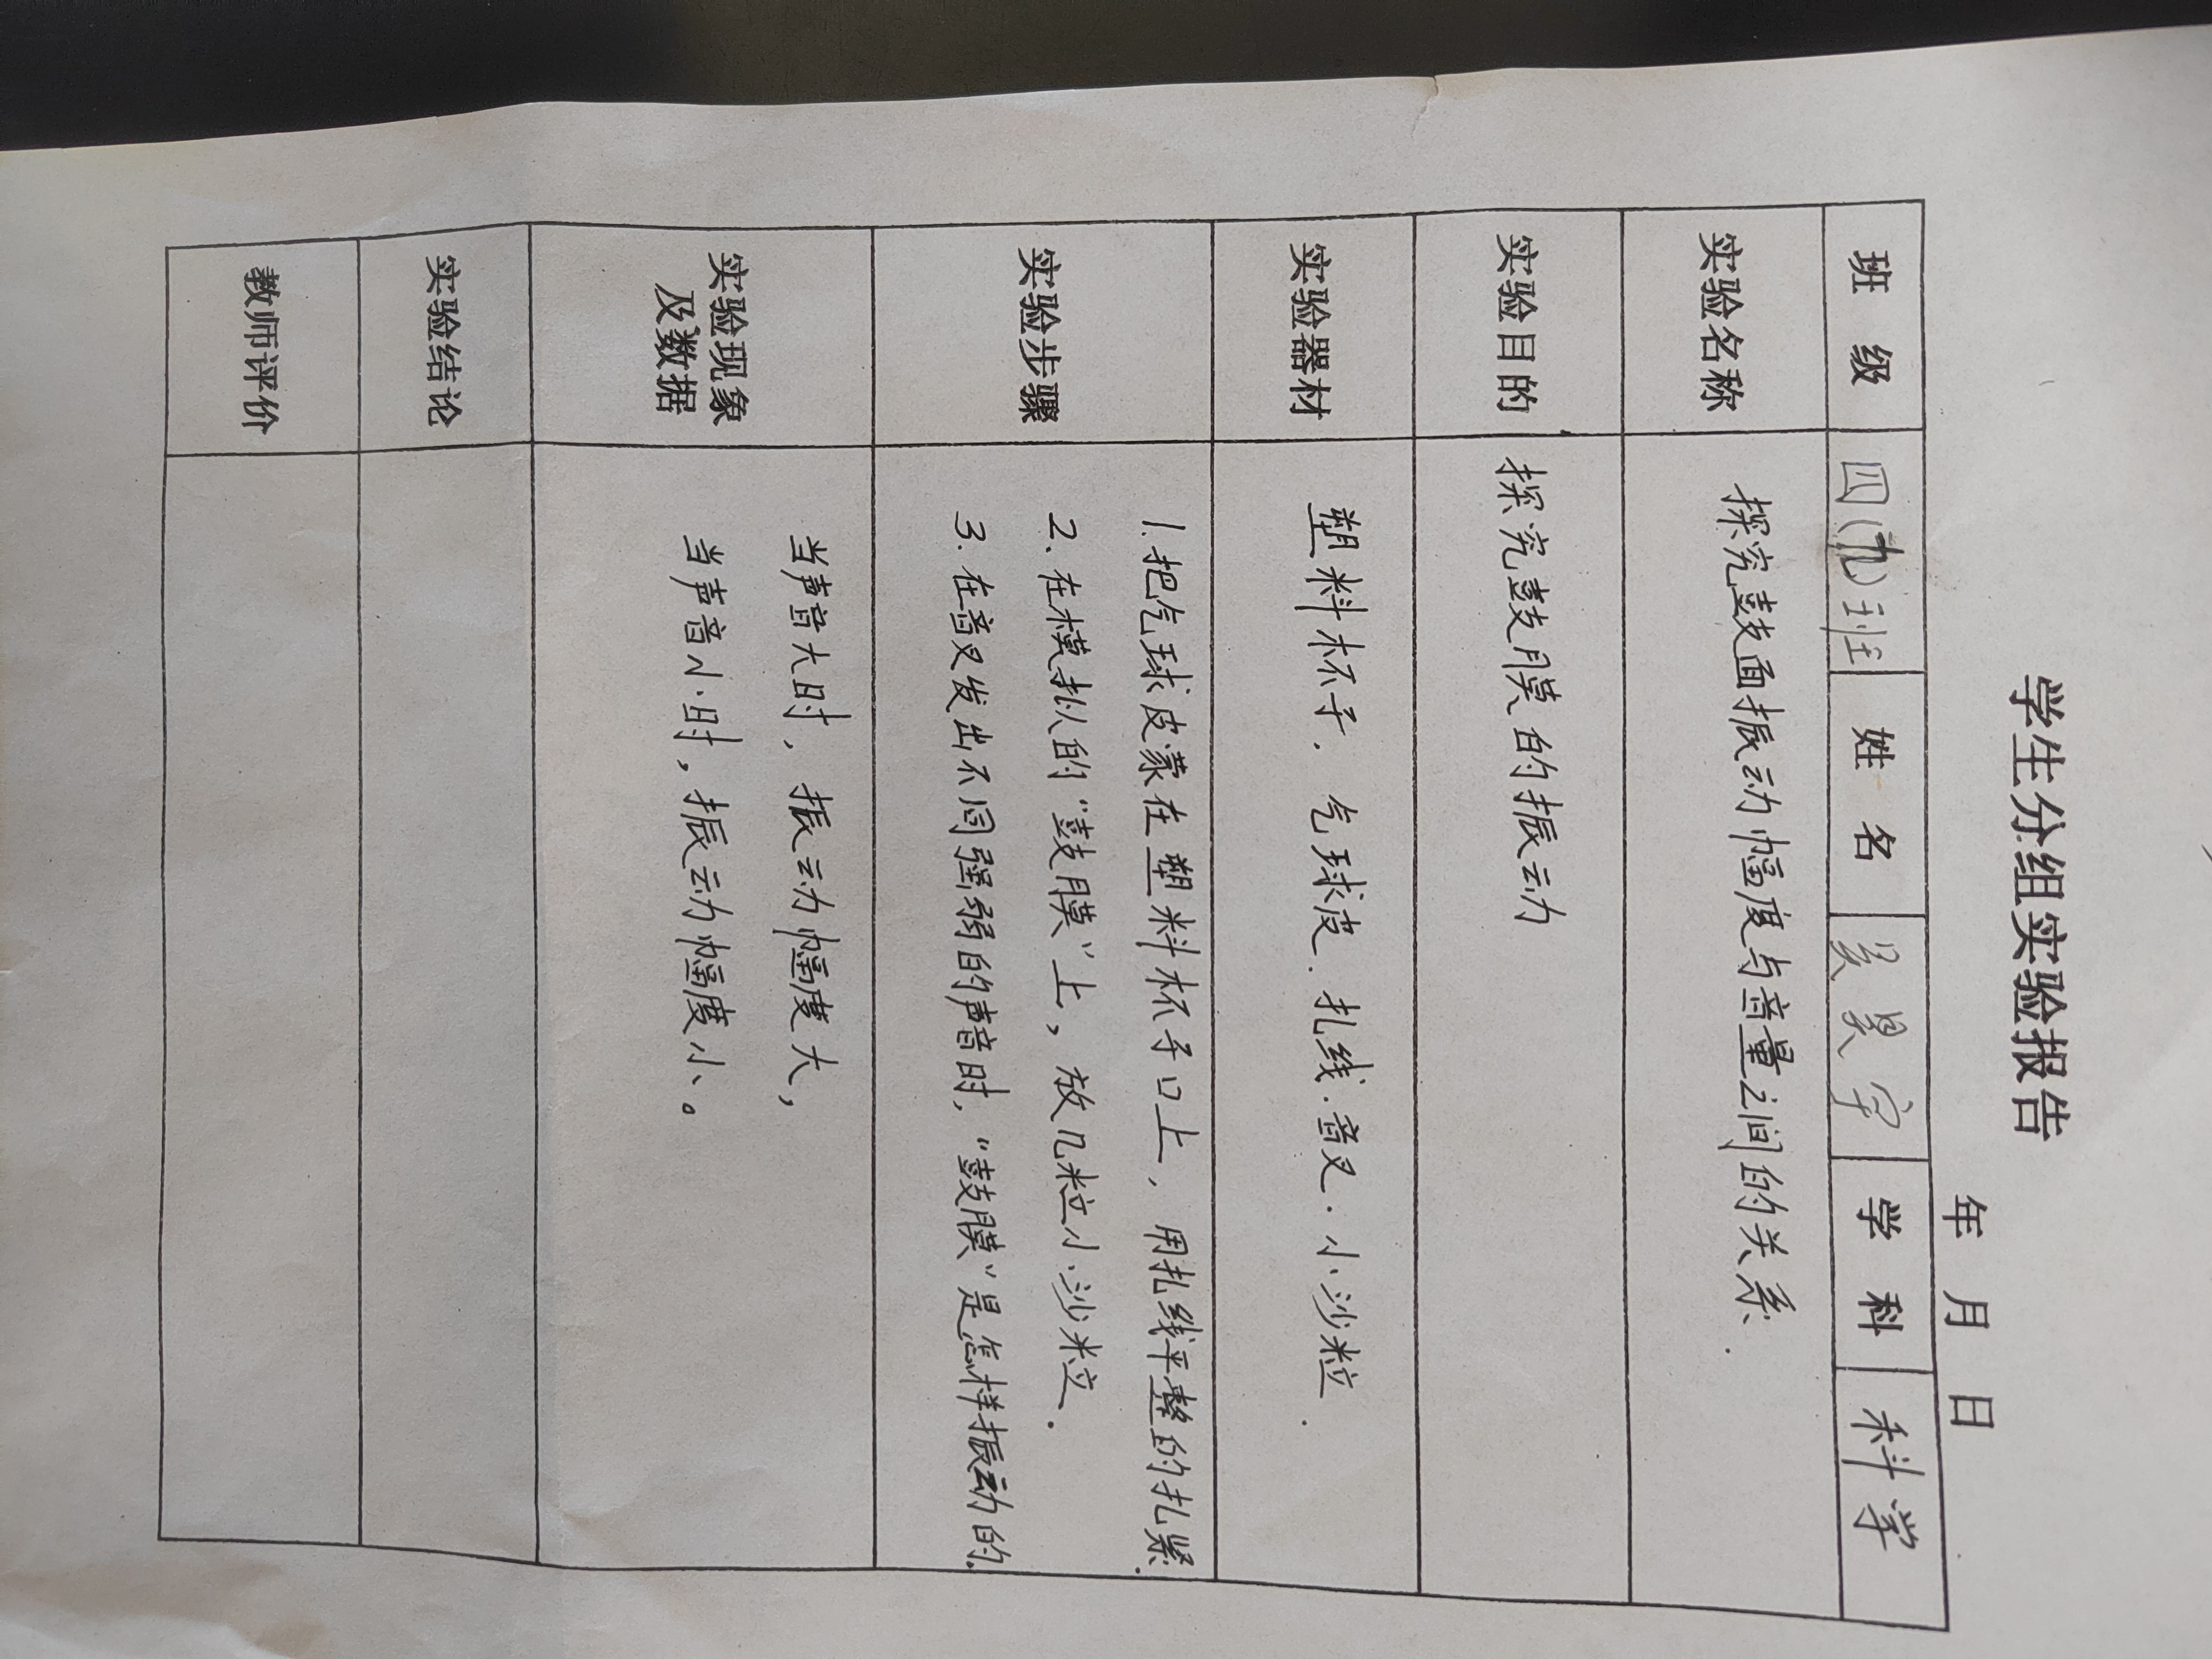 学生分组实验报告
年 月 日
班 级 四(九)班 姓 名 吴昊宇 学 科 科学
实验名称 探究鼓面振动幅度与音量之间的关系.
实验目的 探究鼓膜的振动
实验器材 塑料杯子.气球皮.扎线.音叉.小沙粒.
实验步骤 1.把气球皮蒙在塑料杯子口上,用扎线平整的扎紧.
2.在模拟的“鼓膜”上,放几粒小沙粒.
3.在音叉发出不同强弱的声音时,“鼓膜”是怎样振动的.
实验现象及数据 当声音大时,振动幅度大,
当声音小时,振动幅度小。
实验结论
教师评价